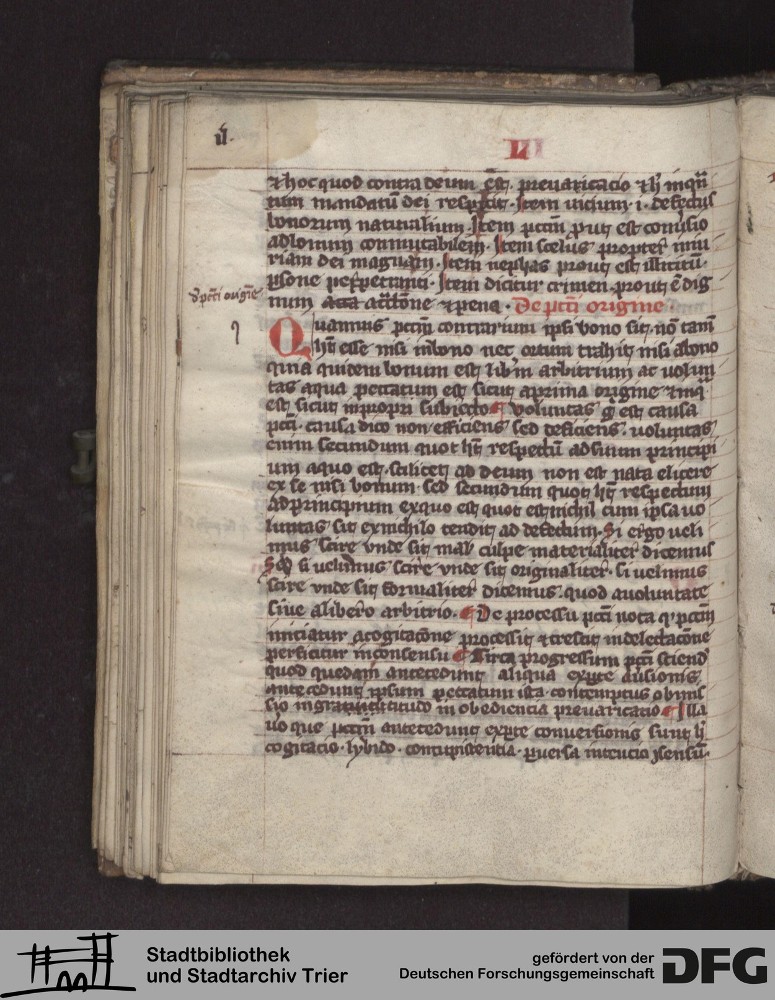 ii.
LII
⁊ hoc quod contra deum est. prevaricatio ⁊ hͥ inqͣn
tum mandatū dei respicit. Item vicium i. defectus
bonorum naturalium. Item pctm̄ prout est conūsio
ad bonum conmutabilem. Item scelus propter iniu
riam dei magnam. Item nephas prout est illicitū.
psone perpetranti. Item dicitur crimen. prout ē dig
num accusatōne ⁊ pena. De pcti origine
d' pcti origīe
Quamuis pctm̄ contrarium ipsi bono sit. nō tam̄
hēt esse nisi in bono nec ortum trahit nisi a bono
quia quidem bonum est lib'm arbitrium ac volun
tas a qua peccatum est sicut a prima origine ⁊ in q̄
est sicut in propri subiecto ¶ Voluntas g̃ est causa
pcti. causa dico non efficiens sed deficiens. voluntas
enim secundum quot hēt respectū ad suum principi
um a quo est. scilicet ad deum non est nata elicere
ex se nisi bonum. sed secundum quot hēt respectum
ad principium ex quo est quot est nichil cum ipsa vo
luntas sit ex nichilo tendit ad defectum. Si ergo veli
mus scire vnde sit malū culpe materialiter dicemus
Sed si velimus scire vnde sit originaliter. si velimus
scire vnde sit formaliter dicemus. quod a voluntate
siue a libero arbitrio. ¶ De processu pcti nota q' pctm̄
iniciatur a cogitacōne processit ⁊ crescit in delectacōne
perficitur in consensu ¶ Circa progressum pcti sciend'
quod quedam antecedunt aliqua ex pte auersionis
antecedunt ipsum peccatum ista. contemptus obmis
sio ingratitudo in obediencia prevaricatio ¶ Illa
v'o que pctm̄ antecedunt ex pte conversionis sunt hͥ
cogitacio. lybido. concupiscentia. puersa intencio ⁊ sensū.
Stadtbibliothek
und Stadtarchiv Trier
gefördert von der
Deutschen Forschungsgemeinschaft
DFG